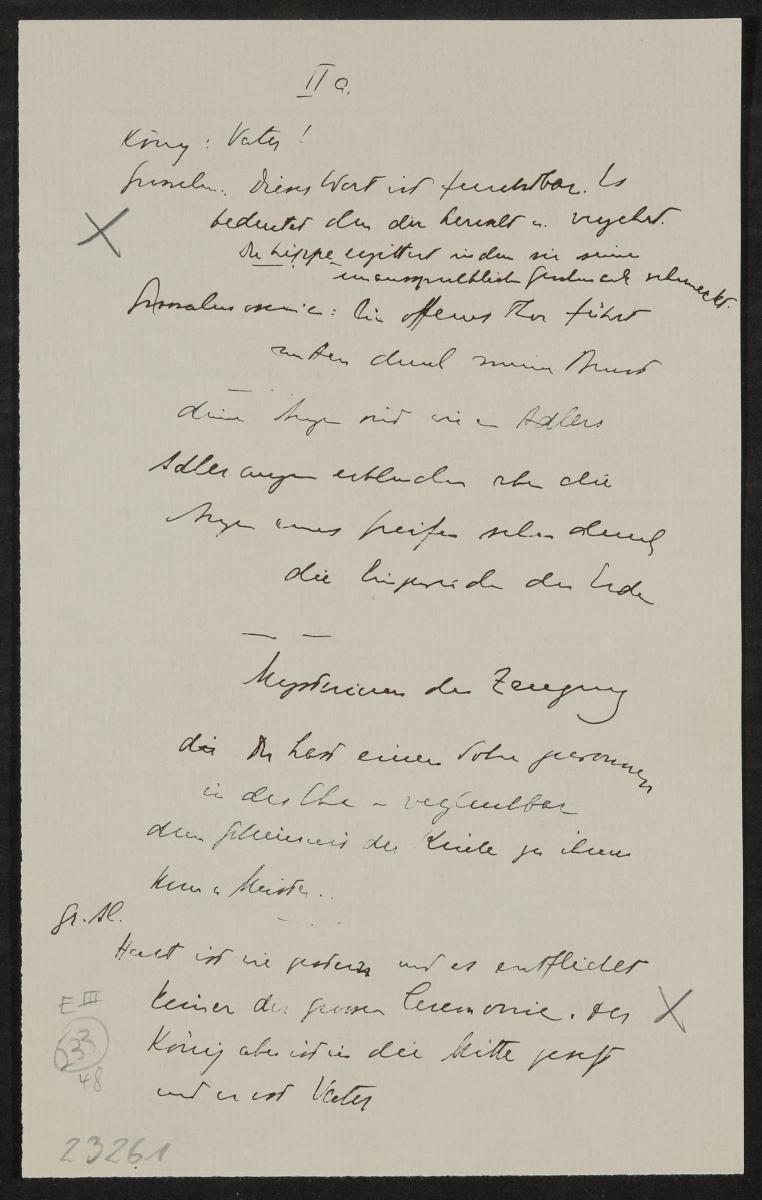 II a.
König: Vater!
Dieses Wort ist furchtbar. Es
bedeutet den der herrscht u. vergehrt.
Die Lippe erzittert indem sie seine
unaussprechlich Geschmack schmeckt.
Ein offenes Thor führt
mitten durch meine Brust
deine Augen sind wie ein Adlers
Adleraugen erblinden aber die
Augen eines Greifen sehen durch
die Eingeweide der Erde
Mysterium der Zeugung
die Du hast einen Sohn gewonnen
in der Ehe u
dem Geheimnis der
kein Meister..
Gr. Al.
Heut ist wie gestern und es entflieht
keiner der grossen Ceremonie. Der
König aber ist in die Mitte gesetzt
und er ist Vater
E III
33
48
23261